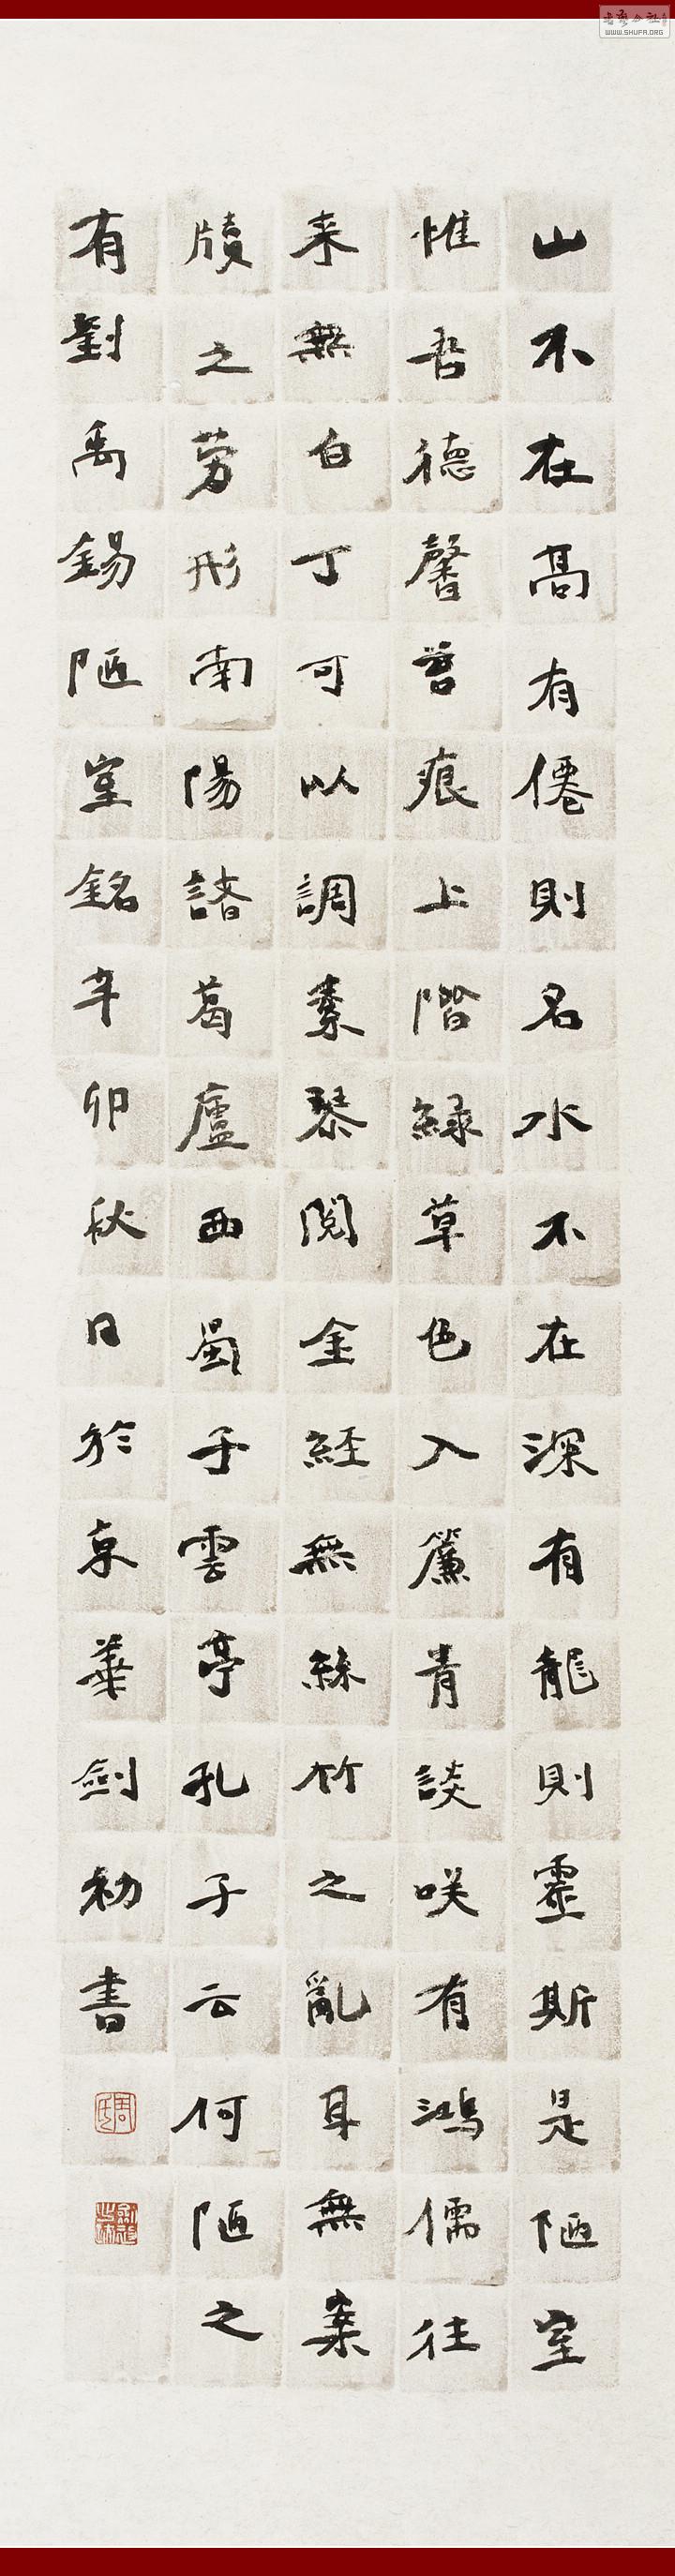 山不在高有僊則名水不在深有龍則靈斯是陋室
惟吾德馨苔痕上階緑草色入簾青談咲有鴻儒往
来無白丁可以調素琴閲金經無絲竹之亂耳無案
牘之勞形南陽諸葛廬西蜀子雲亭孔子云何陋之
有劉禹錫陋室銘辛卯秋日於京華劍初書
周氏
WWW.SHUFA.ORG